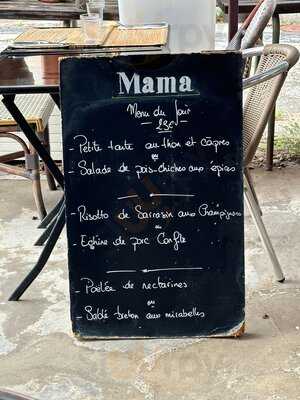 Mama
Menu du Jour
23€
- Petite tarte au thon et câpres
ou
- Salade de pois-chiches aux épices
- Risotto de Sarrasin aux Champignons
ou
- Echine de porc Confite
- Poêlée de nectarines
ou
- Sablé breton aux mirabelles